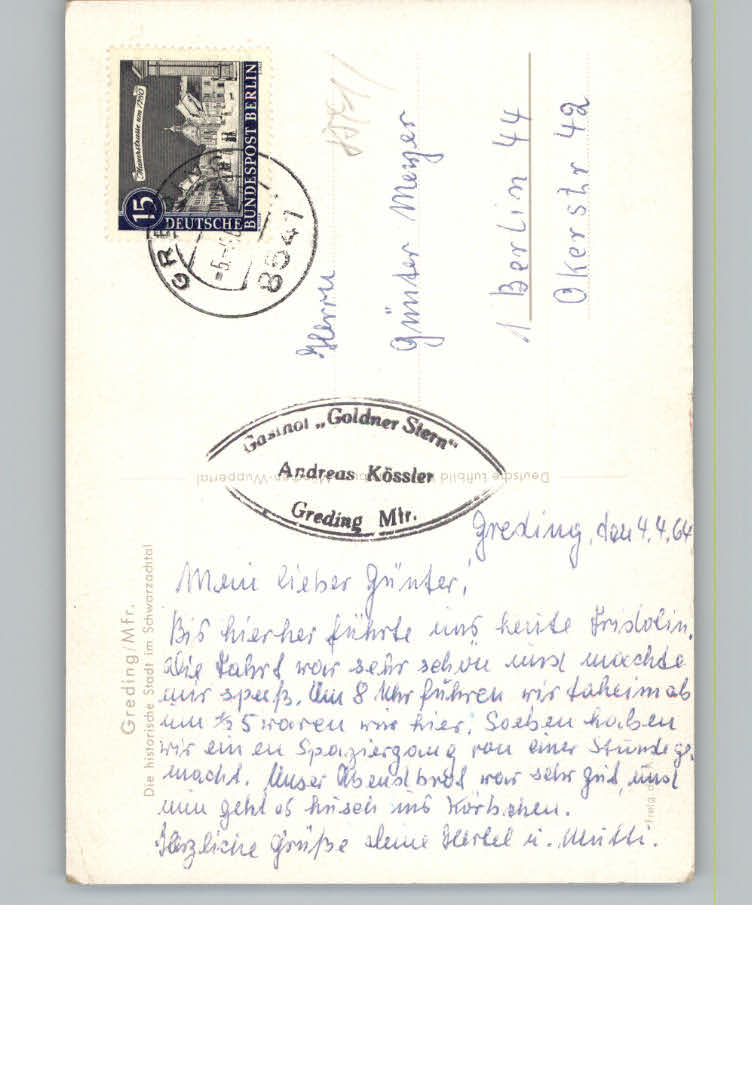 Mauerstrasse um 1780
15
DEUTSCHE
BUNDESPOST BERLIN
8547
Herrn
Günter Meizer
1 Berlin 44
Okerstr 42
Gasthof „Goldner Stern“
Andreas Kössler
Greding Mfr.
Deutsche Luftbild
München-Wuppertal
Greding/Mfr.
Die historische Stadt im Schwarzachtal
Greding, den 4.4.64
Mein lieber Günter!
Bis hierher führte uns heute Fridolin.
Die Fahrt war sehr schön und machte
mir spaß. Um 8 Uhr führen wir daheim ab
um ½ 5 waren wir hier. Soeben haben
wir einen Spaziergang von einer Stunde ge-
macht. Unser Abendbrot war sehr gut, und
nun geht es husch ins Körbchen.
Herzliche Grüße deine Hertel u. Mutti.